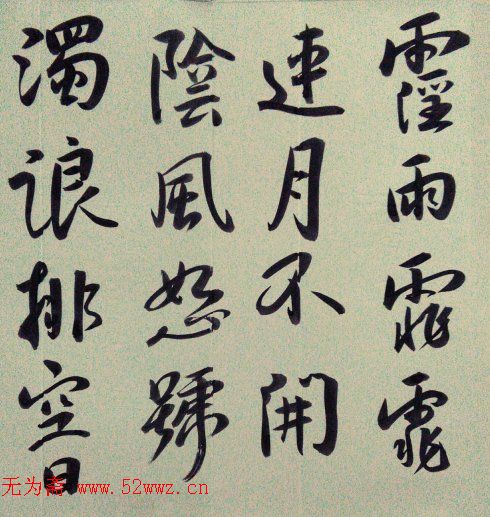 霪雨霏霏
連月不開
陰風怒號
濁浪排空日
无为斋 www.52wwz.cn